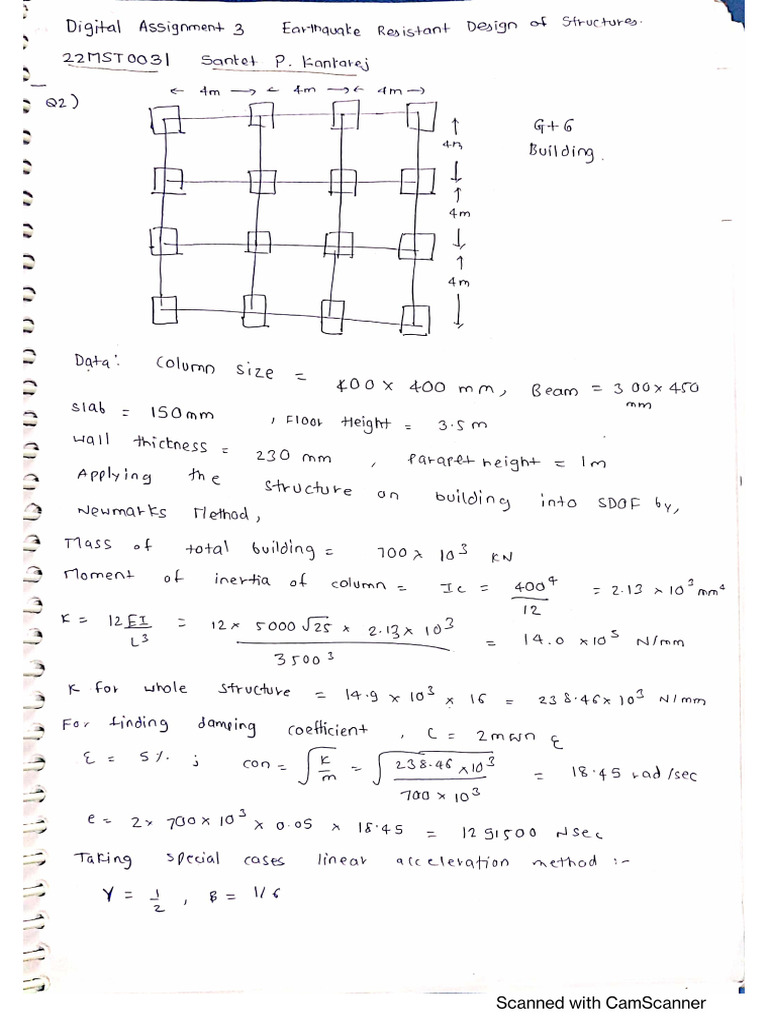 Digital Assignment 3 Earthquake Resistant Design of Structures.
22MST0031 Santet P. Kantarej
← 4m → ← 4m → ← 4m →
Q2)
G+6
Building.
↑
4m
↓
↑
4m
↓
↑
4m
↓
Data: Column size = 400 x 400 mm, Beam = 300 x 450 mm
slab = 150mm , Floor Height = 3.5m
wall thickness = 230 mm , Parapet height = 1m
Applying the structure on building into SDOF by,
Newmarks Method,
Mass of total building = 700 x 10³ KN
Moment of inertia of column = Ic = 400⁴/12 = 2.13 x 10³ mm⁴
K = 12EI/L³ = 12 x 5000√25 x 2.13 x 10³ / 3500³ = 14.0 x 10⁵ N/mm
K for whole structure = 14.9 x 10³ x 16 = 238.46 x 10³ N/mm
For finding damping coefficient , C = 2mωn ξ
ξ = 5% ; ωn = √(K/m) = √(238.46 x 10³ / 700 x 10³) = 18.45 rad/sec
e = 2x 700 x 10³ x 0.05 x 18.45 = 1291500 Nsec
Taking special cases linear acceleration method :-
γ = 1/2 , β = 1/6
Scanned with CamScanner